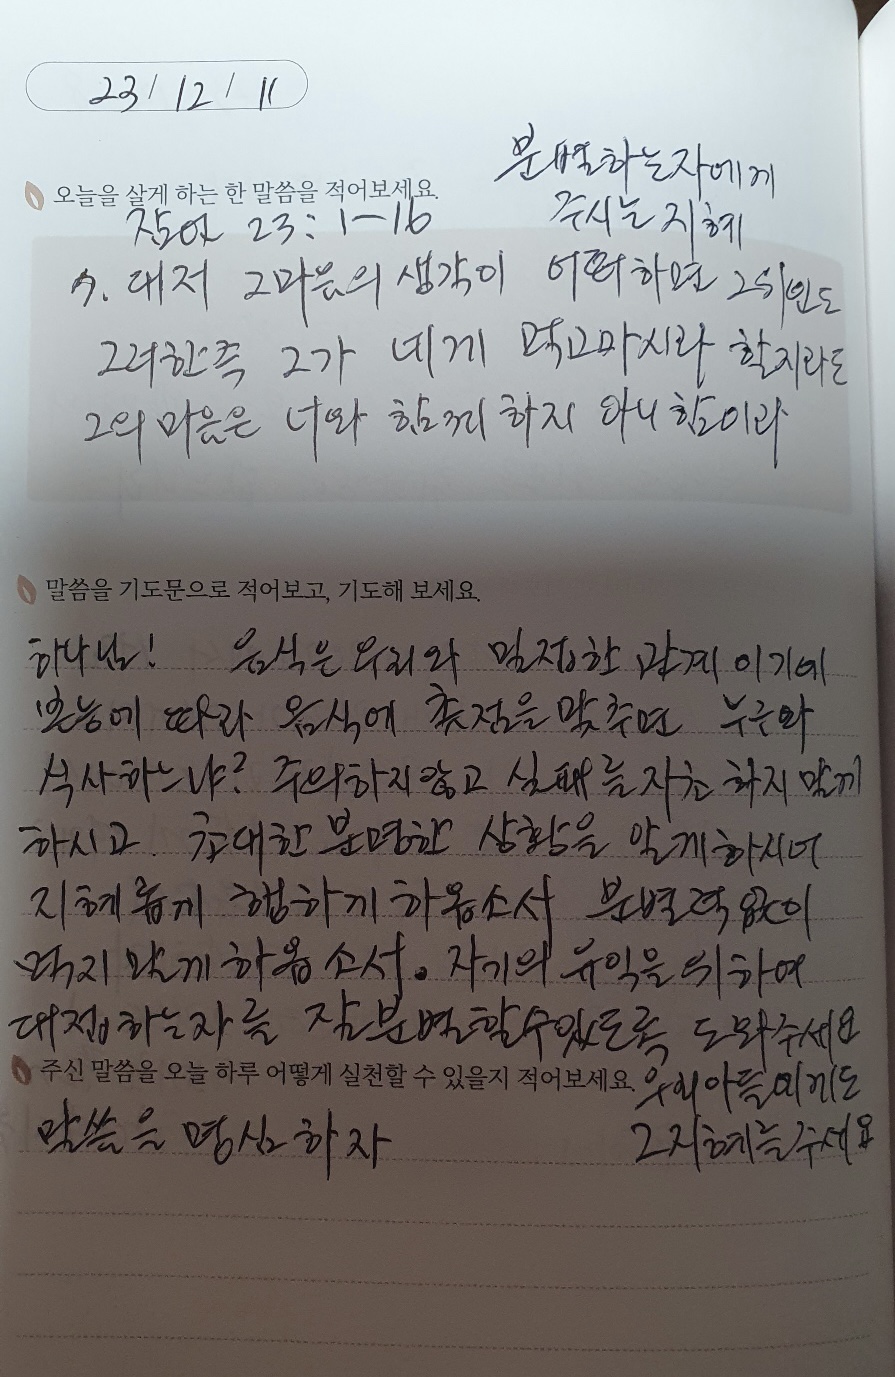 23/12/11
분별하는자에게
오늘을 살게 하는 한 말씀을 적어보세요.
주시는 지혜
잠언 23:1-16
7. 대저 그마음의 생각이 어떠하면 그위인도
그러한즉 그가 네게 먹고마시라 할지라도
그의 마음은 너와 함께 하지 아니함이라
말씀을 기도문으로 적어보고, 기도해 보세요.
하나님! 음식은 우리와 밀접한 관계 이기에
본능에 따라 음식에 촛점을 맞추면 누구와
식사하느냐? 주의하지않고 실패를자초 하지 말게
하시고 초대한 분명한 상황을 알게하시어
지혜롭게 행하게 하옵소서 분별력 없이
먹지 말게 하옵소서. 자기의 유익을 위하여
대접하는자를 잘분별할수있도록 도와주세요
주신 말씀을 오늘 하루 어떻게 실천할 수 있을지 적어보세요.
우리아들에게도
그지혜를주세요
말씀을 명심하자